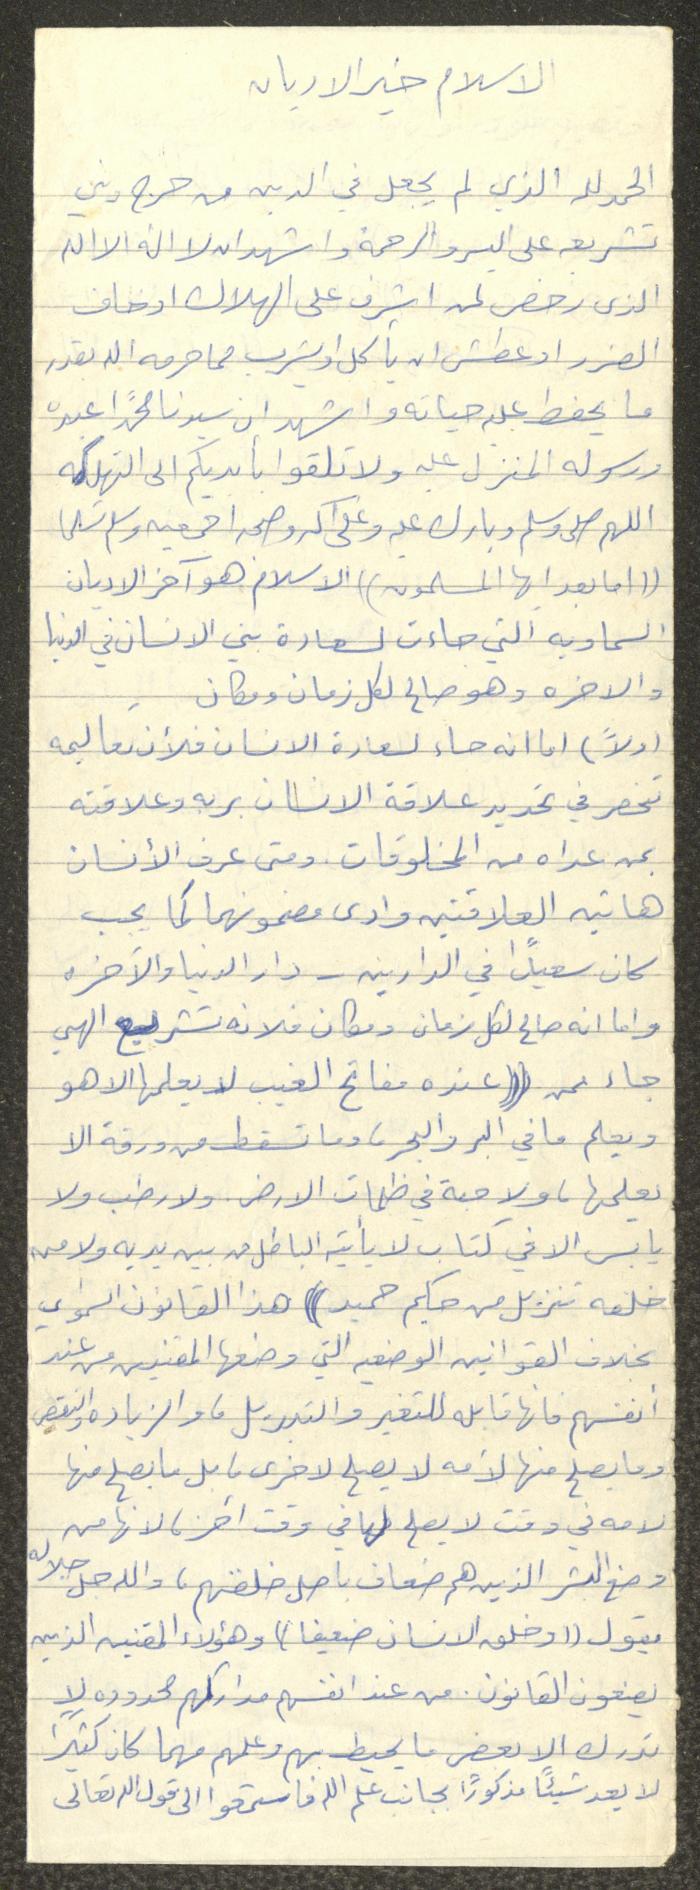 الاسلام خير الاديان
الحمد لله الذي لم يجعل في الدين من حرج وبني
تشريعه على اليسر والرحمة واشهد ان لا اله الا الله
الذى رخص لمن اشرف على الهلاك او خاف
الضرر او عطش ان يأكل او يشرب مما حرمه الله بقدر
ما يحفظ عليه حياته واشهد ان سيدنا محمدًا عبده
ورسوله المنزل عليه ولا تلقوا بأيديكم الى التهلكه
اللهم صلى وسلم وبارك عليه وعلى آله وصحبه اجمعين وسلم تسليما
((اما بعد ايها المسلمون)) الاسلام هو آخر الاديان
السماويه التي جاءت لسعادة بني الانسان في الدنيا
والاخره وهو صالح لكل زمان ومكان
(اولاً) اما انه جاء لسعادة الانسان فلأن تعاليمه
تنحصر في تحديد علاقة الانسان بربه وعلاقته
بمن عداه من المخلوقات. ومتى عرف الأنسان
هاتين العلاقتين وادى مضمونهما كما يجب
كان سعيدًا في الدارين - دار الدنيا والآخره
واما انه صالح لكل زمان ومكان فلانه تشريع الهي
جاء ممن ((عنده مفاتح الغيب لا يعلمها الا هو
ويعلم ما في البر والبحر، وما تسقط من ورقة الا
يعلمها، ولا حبة في ظلمات الارض. ولا رطب ولا
يابس الا في كتاب لا يأتيه الباطل من بين يديه ولا من
خلفه تنزيل من حكيم حميد)) هذا القانون السماوي
بخلاف القوانين الوضعيه التي وضعها المقنين من عند
أنفسهم فانها قابله للتغير والتبديل، والزياده والنقص
وما يصلح منها لأمه لا يصلح لاخرى، بل ما يصلح منها
لامه في وقت لا يصلح لها في وقت آخر، لانها من
وضع البشر الذين هم ضعاف باصل خلقتهم، والله جل جلاله
يقول ((وخلق الانسان ضعيفا)) وهؤلاء المقنين الذين
يضعون القانون. من عند انفسهم مداركهم محدوده لا
تدرك الا بعض ما يحيط بهم وعلمهم مهما كان كثيرًا
لا يعد شيئًا مذكورًا بجانب علم الله فاستمعوا الى قول الله تعالى